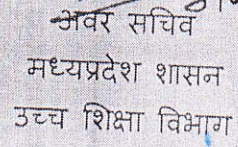 अवर सचिव
मध्यप्रदेश शासन
उच्च शिक्षा विभाग